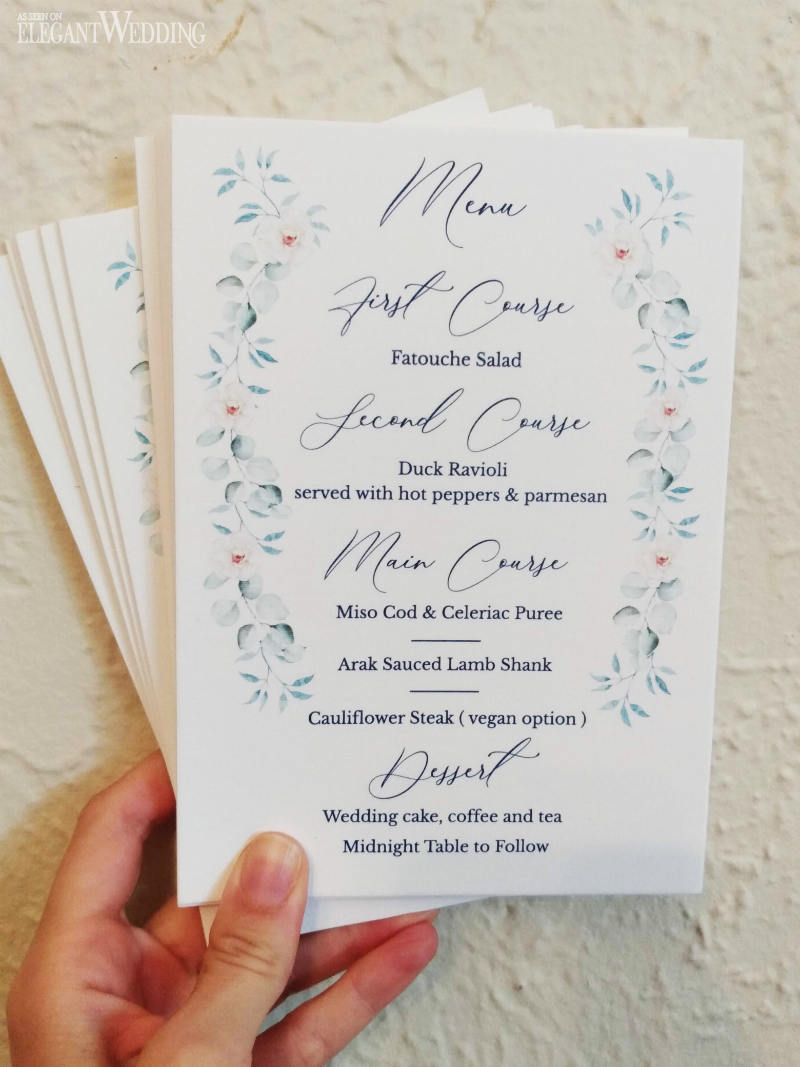 AS SEEN ON
ELEGANTWEDDING
Menu
First Course
Fatouche Salad
Second Course
Duck Ravioli
served with hot peppers & parmesan
Main Course
Miso Cod & Celeriac Puree
Arak Sauced Lamb Shank
Cauliflower Steak ( vegan option )
Dessert
Wedding cake, coffee and tea
Midnight Table to Follow